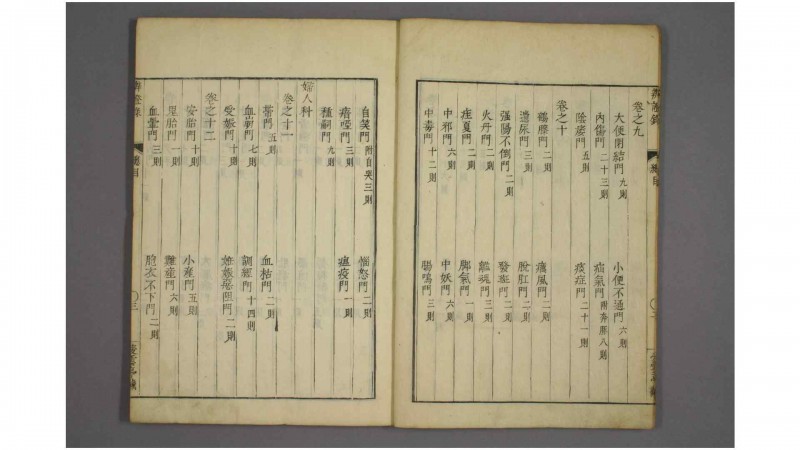 卷之九
大便閉結門九則　小便不通門六則
內傷門二十三則　疝氣門附奔豚八則
陰痿門五則　痰症門二十一則
卷之十
鶴膝門二則　癘風門二則
遺尿門三則　脫肛門二則
強陽不倒門二則　發斑門二則
火丹門三則　離魂門三則
疰夏門二則　脚氣門一則
中邪門六則　中妖門六則
中毒門十二則　腸鳴門三則
自笑門附自哭三則　惱怒門二則
瘖啞門三則　瘟疫門一則
種嗣門九則
婦人科
卷之十一
帶門五則　血枯門二則
血崩門七則　調經門十四則
受姙門十則　姙娠惡阻門二則
卷之十二
安胎門十則　小產門五則
鬼胎門一則　難產門六則
血暈門三則　胞衣不下門二則
總目　三